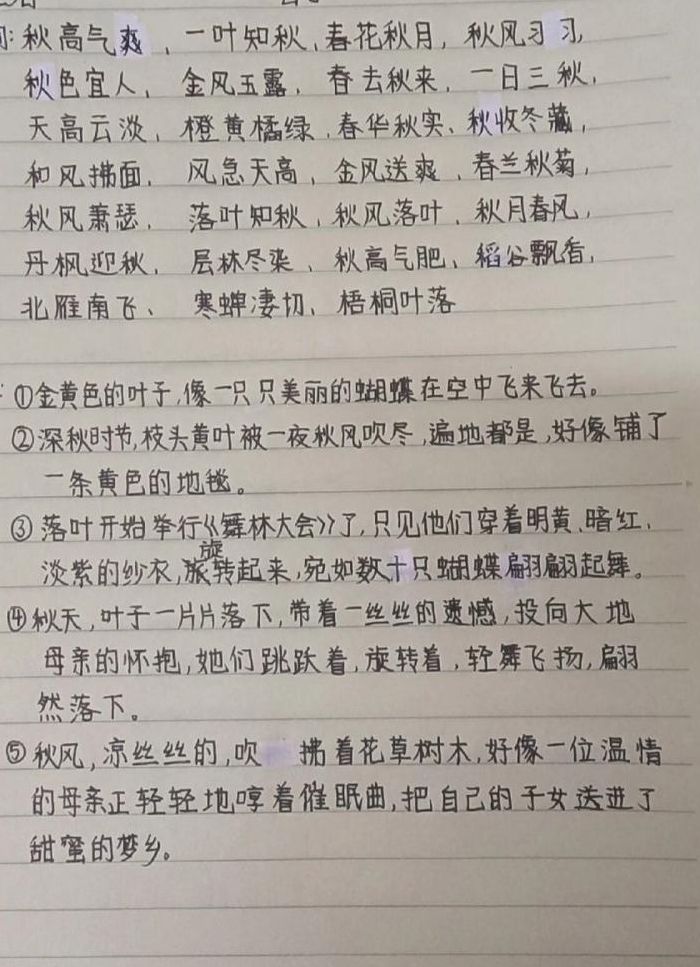 秋高气爽，一叶知秋、春花秋月，秋风习习，
秋色宜人，金风玉露，春去秋来，一日三秋，
天高云淡，橙黄橘绿，春华秋实、秋收冬藏，
和风拂面，风急天高，金风送爽，春兰秋菊，
秋风萧瑟，落叶知秋，秋风落叶，秋月春风，
丹枫迎秋，层林尽染、秋高气肥、稻谷飘香，
北雁南飞、寒蝉凄切、梧桐叶落
①金黄色的叶子,像一只只美丽的蝴蝶在空中飞来飞去。
②深秋时节,枝头黄叶被一夜秋风吹尽,遍地都是,好像铺了
一条黄色的地毯。
③落叶开始举行《舞林大会》了,只见他们穿着明黄、暗红、
淡紫的纱衣,旋转起来,宛如数十只蝴蝶翩翩起舞。
④秋天,叶子一片片落下,带着一丝丝的遗憾,投向大地
母亲的怀抱,她们跳跃着,旋转着,轻舞飞扬,翩
然落下。
⑤秋风,凉丝丝的,吹拂着花草树木,好像一位温情
的母亲正轻轻地哼着催眠曲,把自己的子女送进了
甜蜜的梦乡。